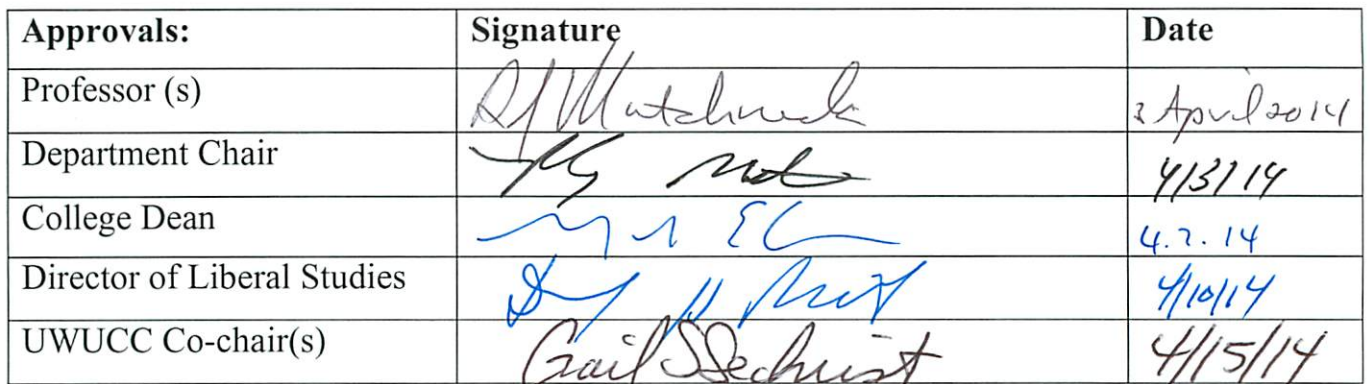 Approvals: Signature Date
Professor (s) 3 April 2014
Department Chair 4/3/14
College Dean 4.7.14
Director of Liberal Studies 4/10/14
UWUCC Co-chair(s) Gail S Sechrist 4/15/14